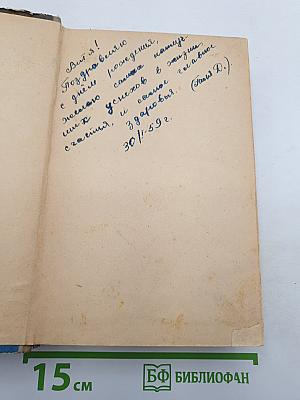 Витя!
Поздравляю
с днем рождения,
желаю самых наилуч-
ших успехов в жизни
счастья, и самое главное
здоровья. (Толя Д.)
30/I-59 г.
15 см
БФ БИБЛИОФАН